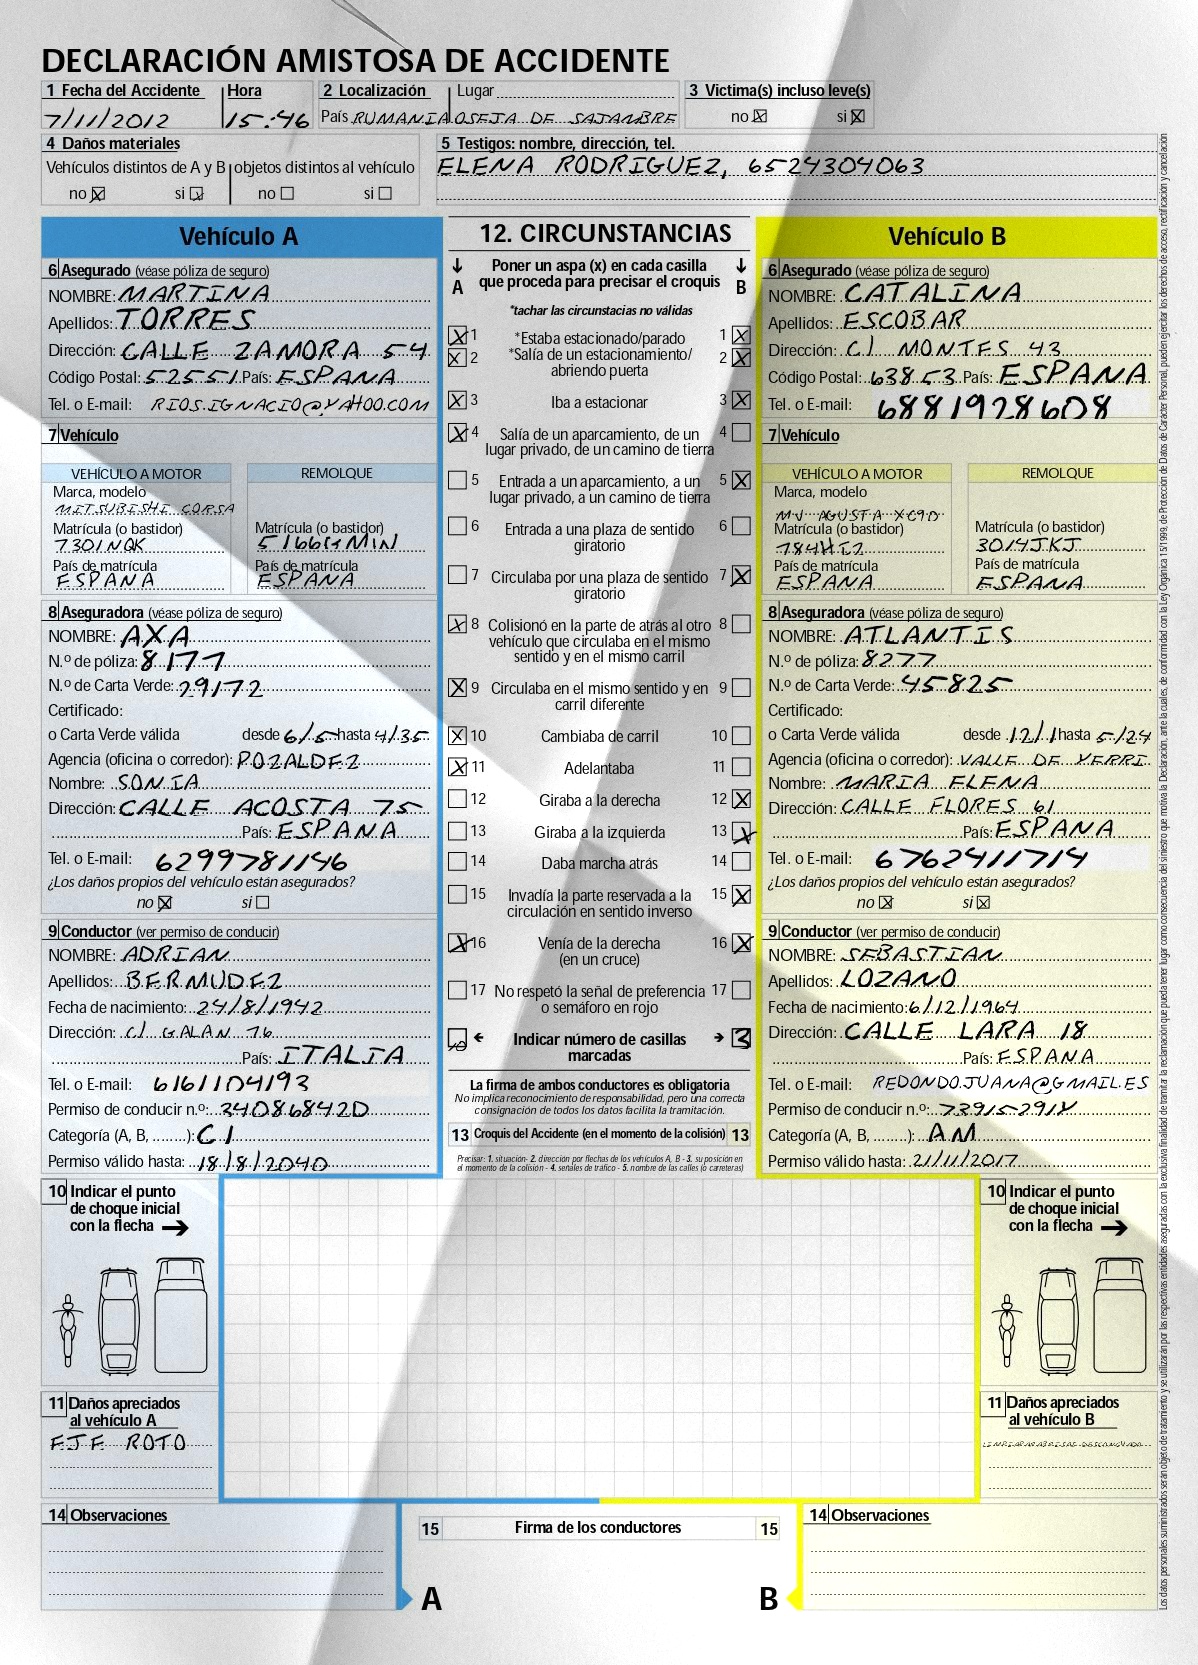 DECLARACIÓN AMISTOSA DE ACCIDENTE
1 Fecha del Accidente Hora
7/11/2012 15:46
2 Localización Lugar
País RUMANIA OSEJA DE SAJAMBRE
3 Victima(s) incluso leve(s)
no ☒ si ☒
4 Daños materiales
Vehículos distintos de A y B objetos distintos al vehículo
no ☒ si ☒ no ☐ si ☐
5 Testigos: nombre, dirección, tel.
ELENA RODRIGUEZ, 6524304063
Vehículo A
6 Asegurado (véase póliza de seguro)
NOMBRE: MARTINA
Apellidos: TORRES
Dirección: CALLE ZAMORA 54
Código Postal: 52551 País: ESPANA
Tel. o E-mail: RIOS.IGNACIO@YAHOO.COM
7 Vehículo
VEHÍCULO A MOTOR REMOLQUE
Marca, modelo
MITSUBISHI CORSA
Matrícula (o bastidor) Matrícula (o bastidor)
7301NQK 5166GMIN
País de matrícula País de matrícula
ESPANA ESPANA
8 Aseguradora (véase póliza de seguro)
NOMBRE: AXA
N.º de póliza: 8177
N.º de Carta Verde: 29172
Certificado:
o Carta Verde válida desde 6/5 hasta 4/35
Agencia (oficina o corredor): POZALDEZ
Nombre: SONIA
Dirección: CALLE ACOSTA 75
País: ESPANA
Tel. o E-mail: 6299781146
¿Los daños propios del vehículo están asegurados?
no ☒ si ☐
9 Conductor (ver permiso de conducir)
NOMBRE: ADRIAN
Apellidos: BERMUDEZ
Fecha de nacimiento: 24/8/1942
Dirección: C/ GALAN 76
País: ITALIA
Tel. o E-mail: 6161104193
Permiso de conducir n.º: 34086842D
Categoría (A, B, ........): C1
Permiso válido hasta: 18/8/2040
12. CIRCUNSTANCIAS
A Poner un aspa (x) en cada casilla que proceda para precisar el croquis B
*tachar las circunstacias no válidas
☒ 1 *Estaba estacionado/parado 1 ☒
☒ 2 *Salía de un estacionamiento/ abriendo puerta 2 ☒
☒ 3 Iba a estacionar 3 ☒
☒ 4 Salía de un aparcamiento, de un lugar privado, de un camino de tierra 4 ☐
☐ 5 Entrada a un aparcamiento, a un lugar privado, a un camino de tierra 5 ☒
☐ 6 Entrada a una plaza de sentido giratorio 6 ☐
☐ 7 Circulaba por una plaza de sentido giratorio 7 ☒
☒ 8 Colisionó en la parte de atrás al otro vehículo que circulaba en el mismo sentido y en el mismo carril 8 ☐
☒ 9 Circulaba en el mismo sentido y en carril diferente 9 ☐
☒ 10 Cambiaba de carril 10 ☐
☒ 11 Adelantaba 11 ☐
☐ 12 Giraba a la derecha 12 ☒
☐ 13 Giraba a la izquierda 13 ☒
☐ 14 Daba marcha atrás 14 ☐
☐ 15 Invadía la parte reservada a la circulación en sentido inverso 15 ☒
☒ 16 Venía de la derecha (en un cruce) 16 ☒
☐ 17 No respetó la señal de preferencia o semáforo en rojo 17 ☐
← Indicar número de casillas marcadas → 3
La firma de ambos conductores es obligatoria
No implica reconocimiento de responsabilidad, pero una correcta
consignación de todos los datos facilita la tramitación.
13 Croquis del Accidente (en el momento de la colisión) 13
Precisar: 1. situación- 2. dirección por flechas de los vehículos A, B - 3. su posición en
al momento de la colisión - 4. señales de tráfico - 5. nombre de las calles (o carreteras)
Vehículo B
6 Asegurado (véase póliza de seguro)
NOMBRE: CATALINA
Apellidos: ESCOBAR
Dirección: C/ MONTES 43
Código Postal: 63853 País: ESPANA
Tel. o E-mail: 6881928608
7 Vehículo
VEHÍCULO A MOTOR REMOLQUE
Marca, modelo
MV AGUSTA XC9D
Matrícula (o bastidor) Matrícula (o bastidor)
3014JKJ
País de matrícula País de matrícula
ESPANA ESPANA
8 Aseguradora (véase póliza de seguro)
NOMBRE: ATLANTIS
N.º de póliza: 8277
N.º de Carta Verde: 45825
Certificado:
o Carta Verde válida desde 12/1 hasta 5/24
Agencia (oficina o corredor): VALLE DE YERRI
Nombre: MARIA ELENA
Dirección: CALLE FLORES 61
País: ESPANA
Tel. o E-mail: 6762411714
¿Los daños propios del vehículo están asegurados?
no ☒ si ☒
9 Conductor (ver permiso de conducir)
NOMBRE: SEBASTIAN
Apellidos: LOZANO
Fecha de nacimiento: 6/12/1964
Dirección: CALLE LARA 18
País: ESPANA
Tel. o E-mail: REDONDOJUANA@GMAIL.ES
Permiso de conducir n.º: 73915291X
Categoría (A, B, ........): AM
Permiso válido hasta: 21/11/2017
10 Indicar el punto
de choque inicial
con la flecha →
11 Daños apreciados
al vehículo A
EJE ROTO
10 Indicar el punto
de choque inicial
con la flecha →
11 Daños apreciados
al vehículo B
LIMPIAPARABRISAS DESCONCHADO
14 Observaciones
15 Firma de los conductores 15
A B
14 Observaciones
Los datos personales suministrados serán objeto de tratamiento y se utilizarán por las respectivas entidades aseguradas con la exclusiva finalidad de tramitar la reclamación que pueda tener lugar como consecuencia del siniestro que motiva la Declaración, ante la cuales, de conformidad con la Ley Orgánica 15/1999, de Protección de Datos de Carácter Personal, pueden ejercitar los derechos de acceso, rectificación y cancelación